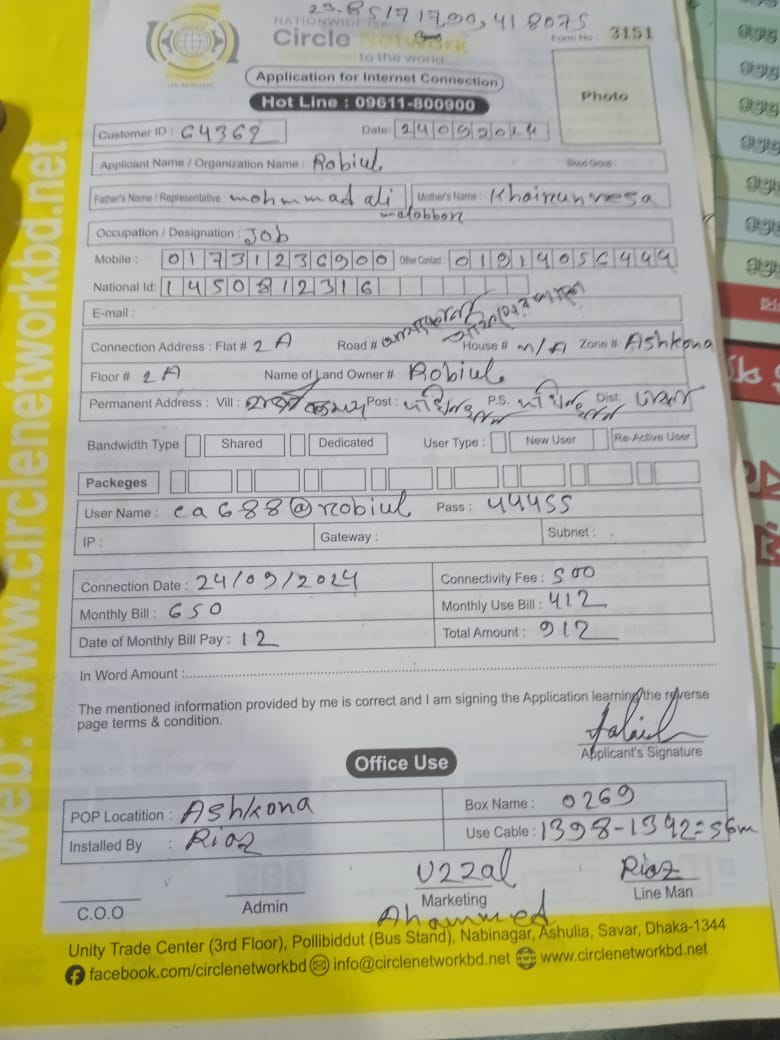 23.851717,90,418075
NATIONWIDE ISP
Circle Network
Connected to the world
Form No : 3151
Application for Internet Connection
Hot Line : 09611-800900
Photo
Customer ID : 64362 Date: 24092024
Applicant Name / Organization Name : Robiul Blood Group :
Father's Name / Representative : mohmmad ali Mother's Name :
Occupation / Designation : Job
Mobile : 01731236900 Other Contact :
National Id: 1450812316
E-mail :
Connection Address : Flat# 2A Road # House # N/A Zone # Ashkona
Floor # 2A Name of Land Owner # Robiul
Permanent Address : Vill : Post : P.S. Dist:
Bandwidth Type Shared Dedicated User Type : New User Re-Active User
Packeges
User Name : ca688@robiul Pass : 44455
IP : Gateway : Subnet :
Connection Date : 24/09/2024 Connectivity Fee : 500
Monthly Bill : 650 Monthly Use Bill : 412
Date of Monthly Bill Pay : 12 Total Amount : 912
In Word Amount :
The mentioned information provided by me is correct and I am signing the Application learning the reverse
page terms & condition.
Applicant's Signature
Office Use
POP Locatition : Ashkona Box Name : 0269
Installed By : Riaz Use Cable : 1398-1342=56m
Uzzal Riaz
C.O.O Admin Marketing Line Man
Ahammed
Unity Trade Center (3rd Floor), Pollibiddut (Bus Stand), Nabinagar, Ashulia, Savar, Dhaka-1344
facebook.com/circlenetworkbd info@circlenetworkbd.net www.circlenetworkbd.net
web: www.circlenetworkbd.net